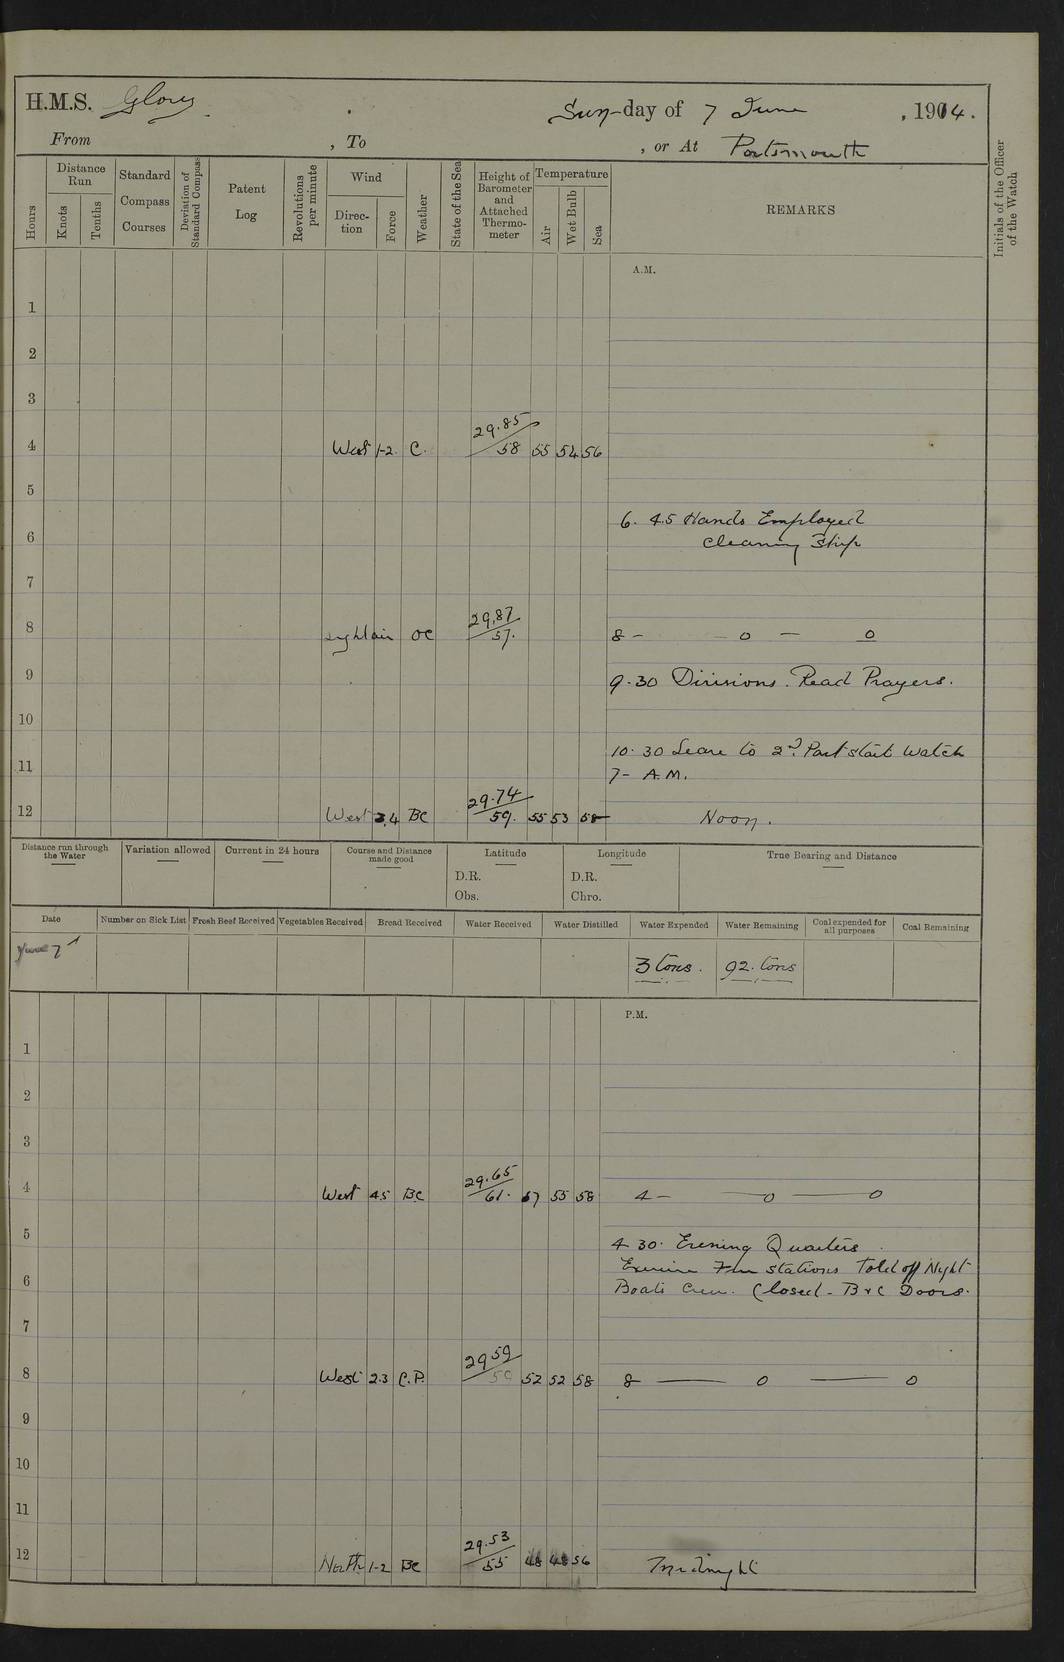 H.M.S. Glory Sun-day of 7 June , 1914.
From , To , or At Portsmouth
Hours Distance Run Knots Tenths Standard Compass Courses Deviation of Standard Compass Patent Log Revolutions per minute Wind Direction Force Weather State of the Sea Height of Barometer and Attached Thermometer Temperature Air Wet Bulb Sea REMARKS Initials of the Officer of the Watch
A.M.
1
2
3
29.85
4 West 1-2 C. 58 55 54 56
5
6. 45 Hands Employed
6 cleaning Ship
7
29.87
8 Light air OC 57. 8 - - 0 - 0
9 9.30 Divisions. Read Prayers.
10
10.30 Leave to 2nd Part Starb Watch
11 7- A.M.
29.74
12 West 3.4 BC 59. 55 53 58 Noon.
Distance run through the Water Variation allowed Current in 24 hours Course and Distance made good Latitude Longitude True Bearing and Distance
D.R. D.R.
Obs. Chro.
Date Number on Sick List Fresh Beef Received Vegetables Received Bread Received Water Received Water Distilled Water Expended Water Remaining Coal expended for all purposes Coal Remaining
June 7 3 tons. 92. tons
P.M.
1
2
3
29.65
4 West 4.5 BC 61. 57 55 58 4 - 0 - 0
5 4 30. Evening Quarters
Exercise Fire stations Told off Night
6 Boats Crew. Closed - B & C Doors.
7
29 59
8 West 2.3 C.P. 52 52 58 8 - 0 - 0
9
10
11
29.53
12 North 1-2 BC 55 48 48 56 Midnight